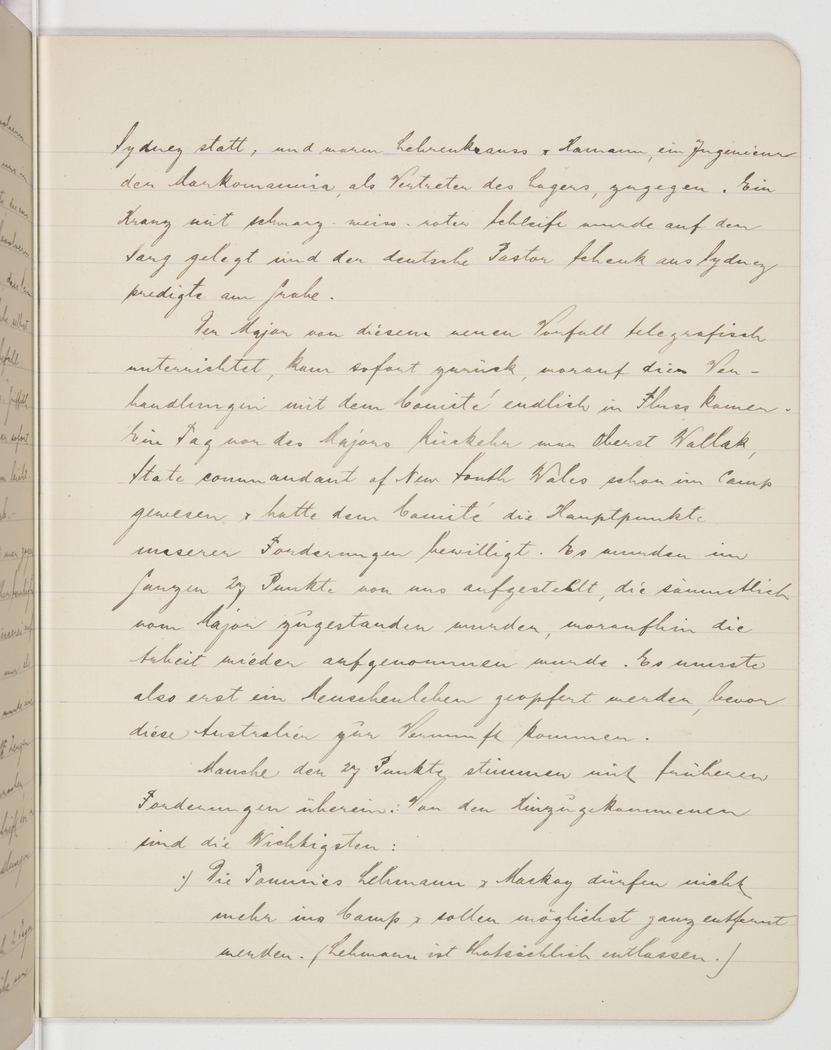 Sydney statt, und waren Lehrenkrauss & Hamann, ein Ingenieur
der Markomannia, als Vertreter des Lagers, zugegen. Ein
Kranz mit schwarz-weiss-roter Schleife wurde auf den
Sarg gelegt und der deutsche Pastor Schenk aus Sydney
predigte am Grabe.
Der Major von diesem neuen Vorfall telegrafisch
unterrichtet, kam sofort zurück, worauf die Ver-
handlungen mit dem Comité endlich in Fluss kamen.
Ein Tag vor des Majors Rückkehr war Oberst Wallak,
State commandant of New South Wales schon im Camp
gewesen & hatte dem Comité die Hauptpunkte
unserer Forderungen bewilligt. Es wurden im
Ganzen 27 Punkte von uns aufgestellt, die sämmtlich
vom Major zugestanden wurden, woraufhin die
Arbeit wieder aufgenommen wurde. Es musste
also erst ein Menschenleben geopfert werden, bevor
diese Australier zur Vernunft kommen.
Manche der 27 Punkte stimmen mit früheren
Forderungen überein: Von den hinzugekommenen
sind die Wichtigsten:
.) Die Tommies Lehmann & Mackay dürfen nicht
mehr ins Camp & sollen möglichst ganz entfernt
werden. (Lehmann ist thatsächlich entlassen.)